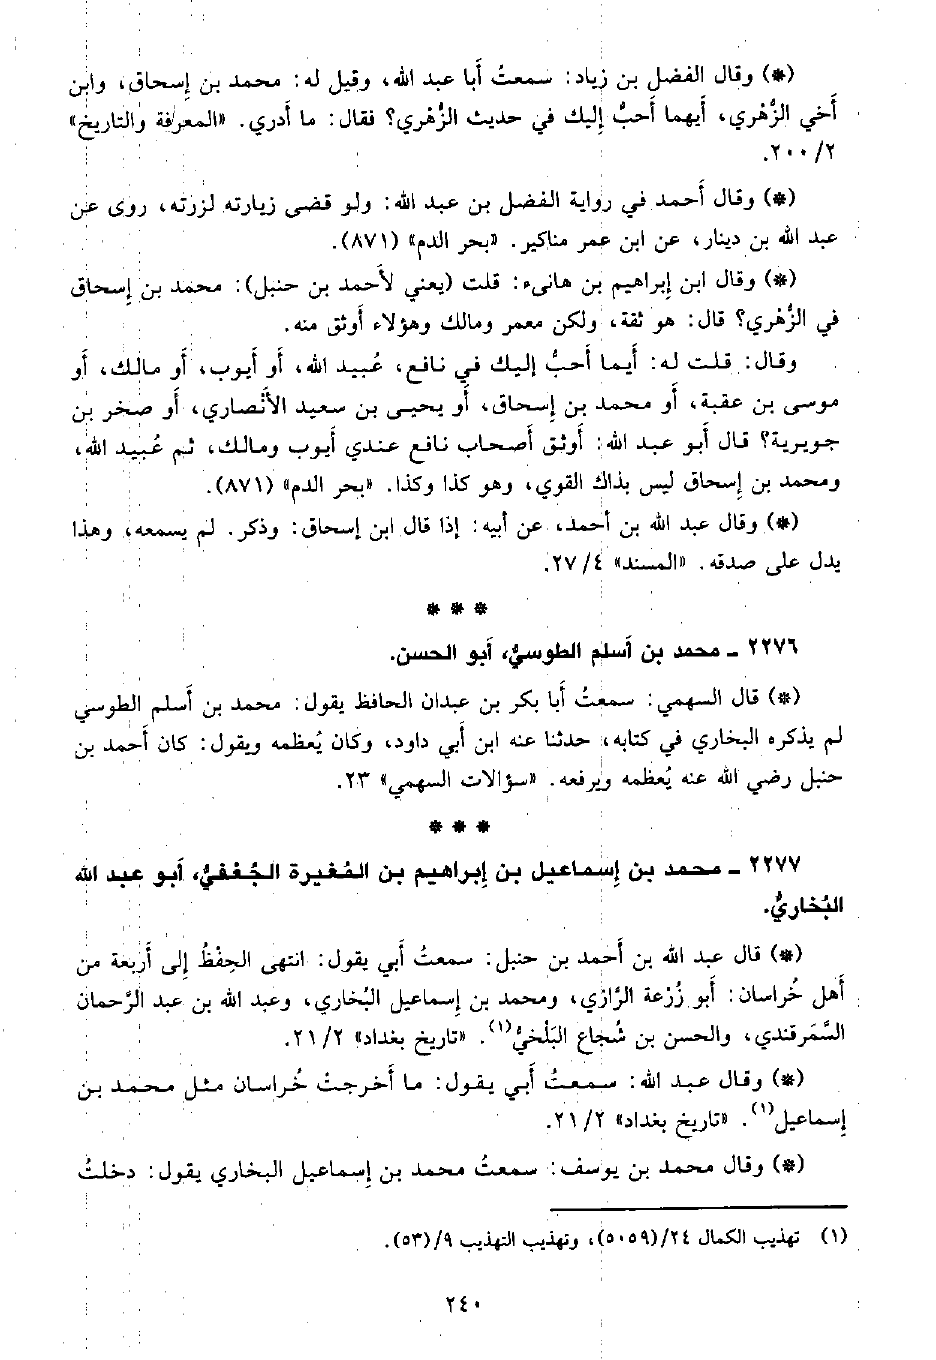 (*) وقال الفضل بن زياد: سمعتُ أبا عبد الله، وقيل له: محمد بن إسحاق، وابن
أخي الزُّهري، أيهما أحبُّ إليك في حديث الزُّهري؟ فقال: ما أدري. «المعرفة والتاريخ»
٢/٢٠٠.
(*) وقال أحمد في رواية الفضل بن عبد الله: ولو قضى زيارته لزرته، روى عن
عبد الله بن دينار، عن ابن عمر مناكير. «بحر الدم» (٨٧١).
(*) وقال ابن إبراهيم بن هانىء: قلت (يعني لأحمد بن حنبل): محمد بن إسحاق
في الزُّهري؟ قال: هو ثقة، ولكن معمر ومالك وهؤلاء أوثق منه.
وقال: قلت له: أيما أحبُّ إليك في نافع، عُبيد الله، أو أيوب، أو مالك، أو
موسى بن عقبة، أو محمد بن إسحاق، أو يحيى بن سعيد الأنصاري، أو صخر بن
جويرية؟ قال أبو عبد الله: أوثق أصحاب نافع عندي أيوب ومالك، ثم عُبيد الله،
ومحمد بن إسحاق ليس بذاك القوي، وهو كذا وكذا. «بحر الدم» (٨٧١).
(*) وقال عبد الله بن أحمد، عن أبيه: إذا قال ابن إسحاق: وذكر. لم يسمعه، وهذا
يدل على صدقه. «المسند» ٤/ ٢٧.
* * *
٢٢٧٦ - محمد بن أسلم الطوسيُّ، أبو الحسن.
(*) قال السهمي: سمعتُ أبا بكر بن عبدان الحافظ يقول: محمد بن أسلم الطوسي
لم يذكره البخاري في كتابه، حدثنا عنه ابن أبي داود، وكان يُعظمه ويقول: كان أحمد بن
حنبل رضي الله عنه يُعظمه ويرفعه. «سؤالات السهمي» ٢٣.
* * *
٢٢٧٧ - محمد بن إسماعيل بن إبراهيم بن المُغيرة الجُعْفيُّ، أبو عبد الله
البُخاريُّ.
(*) قال عبد الله بن أحمد بن حنبل: سمعتُ أبي يقول: انتهى الحِفْظُ إلى أربعة من
أهل خُراسان: أبو زُرعة الرَّازي، ومحمد بن إسماعيل البُخاري، وعبد الله بن عبد الرَّحمان
السَّمَرقندي، والحسن بن شُجاع البَلْخيُّ(١). «تاريخ بغداد» ٢/ ٢١.
(*) وقال عبد الله: سمعتُ أبي يقول: ما أخرجتْ خُراسان مثل محمد بن
إسماعيل(١). «تاريخ بغداد» ٢/ ٢١.
(*) وقال محمد بن يوسف: سمعتُ محمد بن إسماعيل البخاري يقول: دخلتُ
(١) تهذيب الكمال ٢٤/(٥٠٥٩)، وتهذيب التهذيب ٩/(٥٣).
٢٤٠